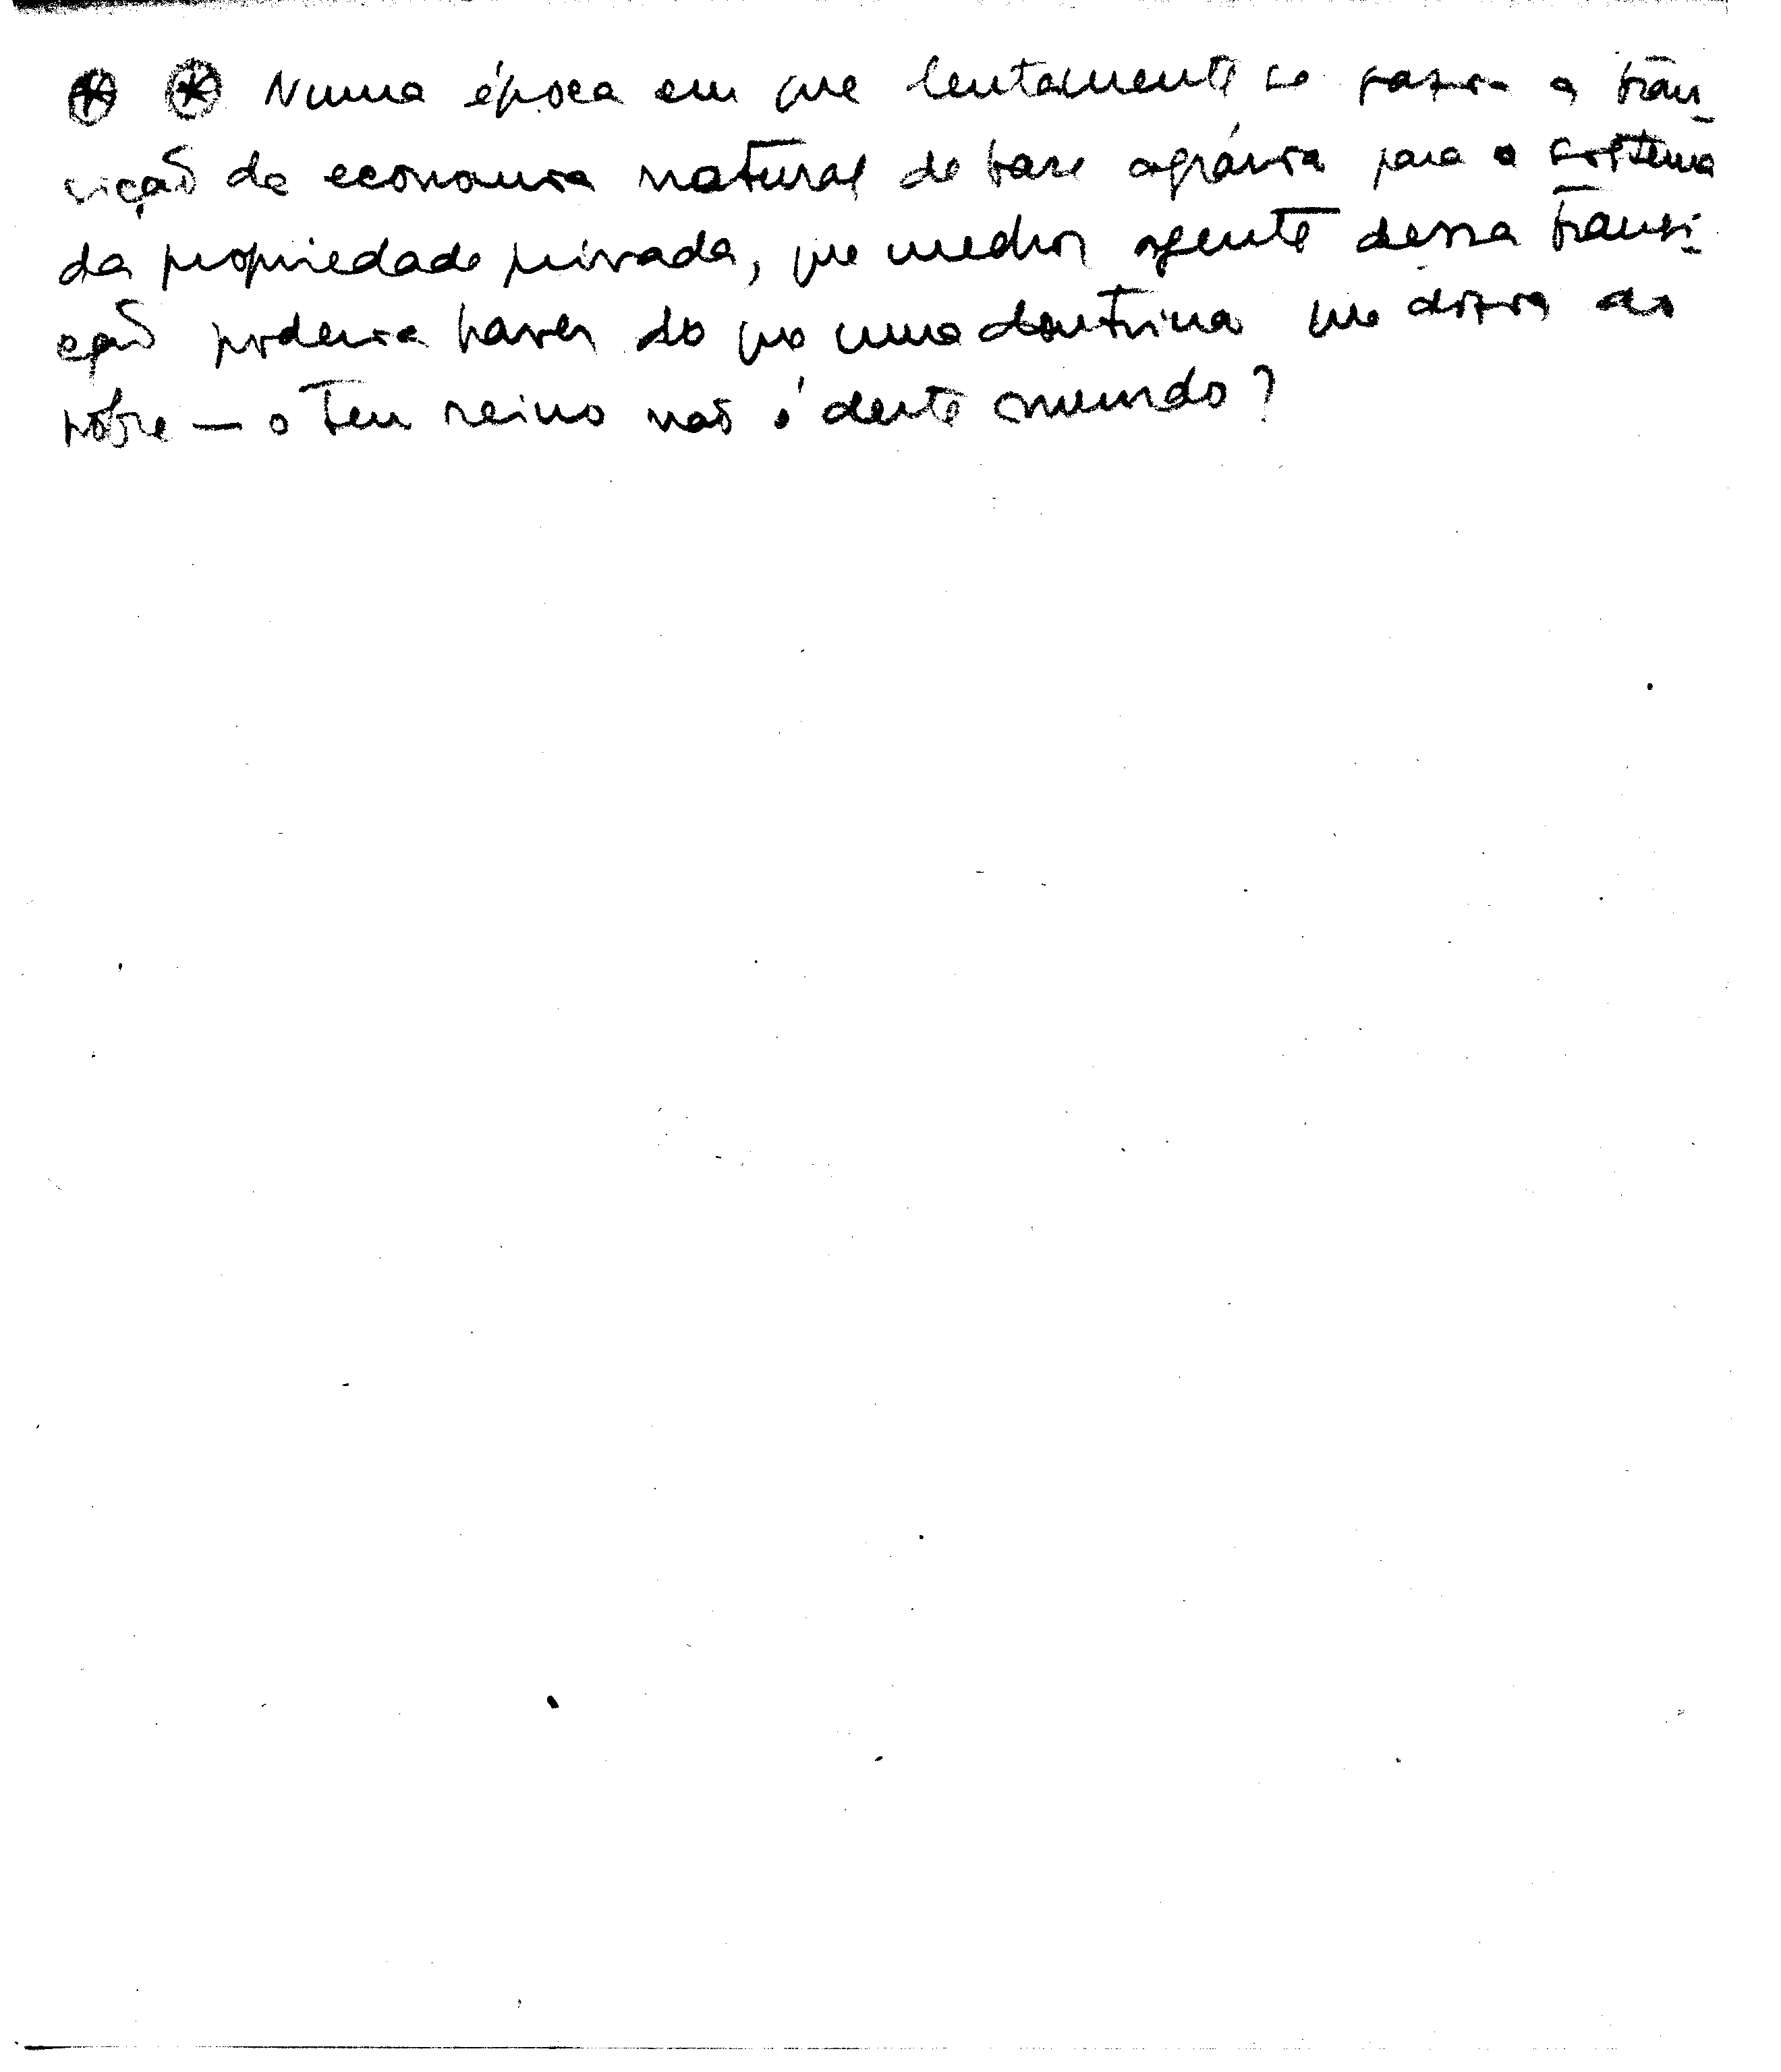 ⊛ ⊛ Numa época em que lentamente se fazia a tran-
sição da economia natural de base agrária para o sistema
da propriedade privada, que melhor agente dessa transi-
ção poderia haver do que uma doutrina que dizia ao
pobre — o teu reino não é deste mundo?